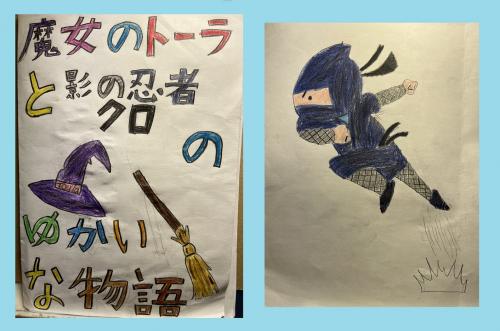 魔女のトーラ
と影の忍者
クロ
の
ゆかい
な物語